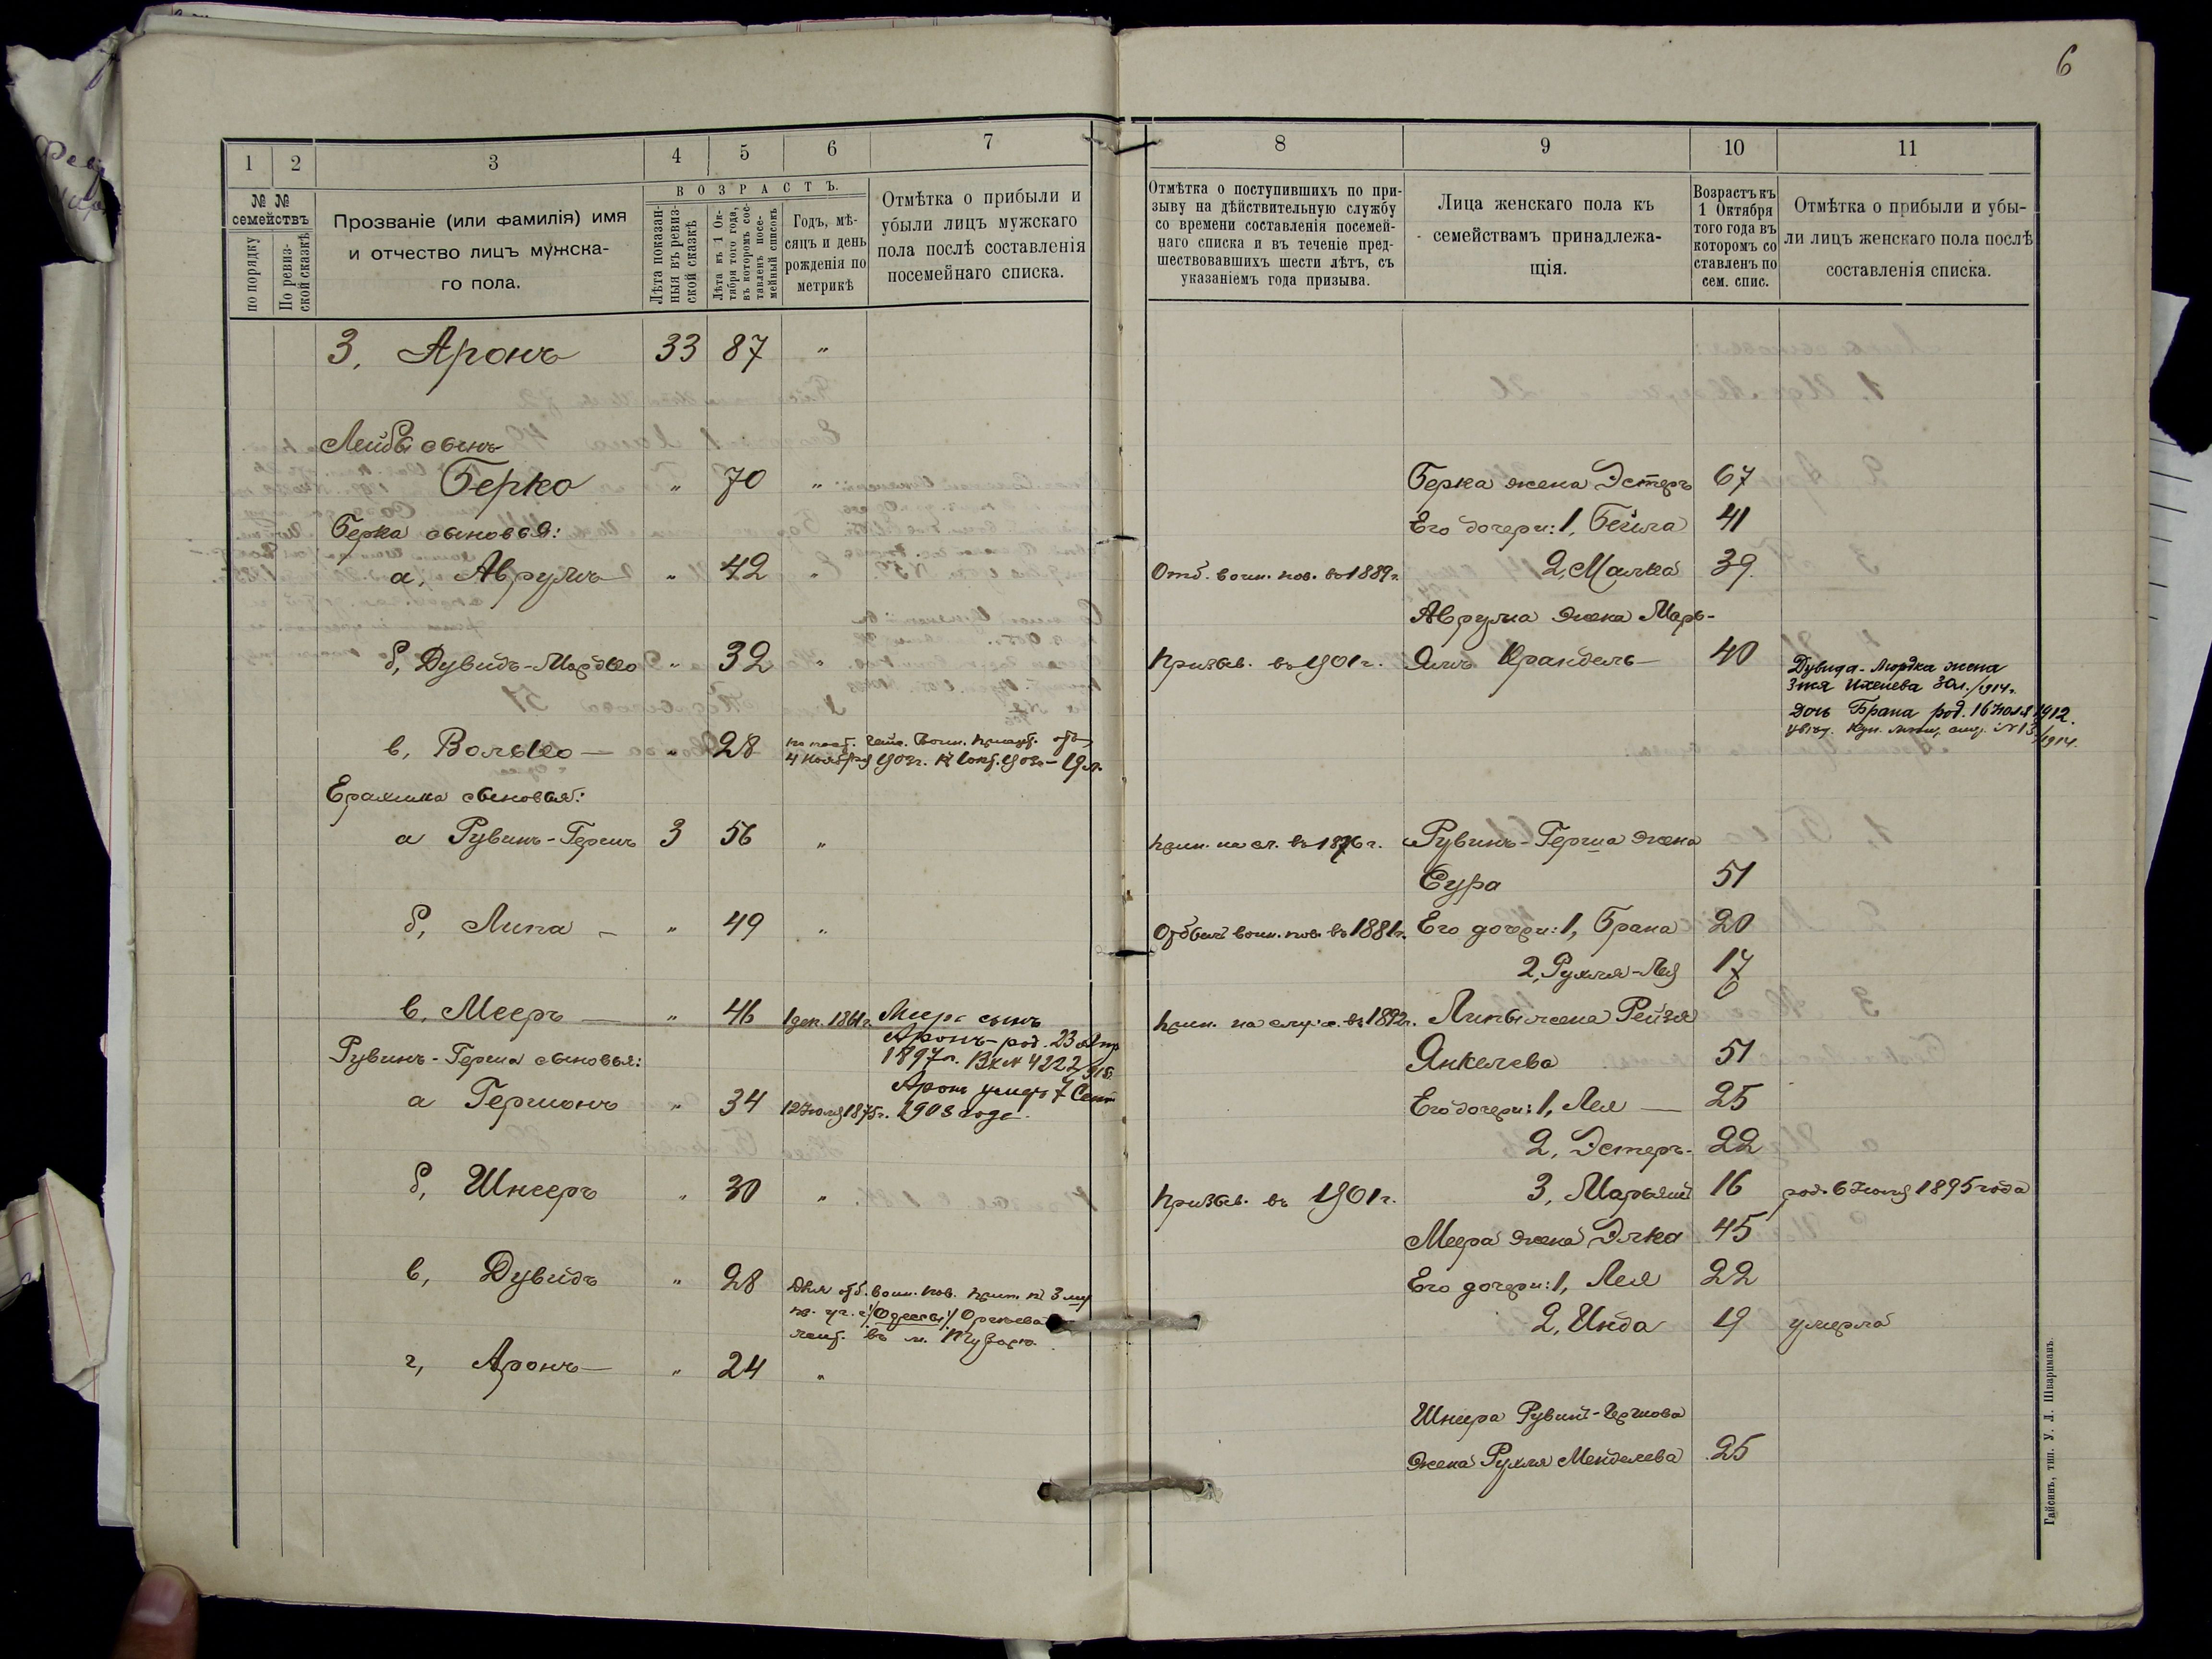 6
1
2
3
4
5
6
7
№ №
семействъ
по порядку
По ревиз-
ской сказкѣ
Прозваніе (или фамилія) имя
и отчество лицъ мужска-
го пола.
ВОЗРАСТЪ.
Лѣта показан-
ныя въ ревиз-
ской сказкѣ
Лѣта къ 1 Ок-
тября того года,
въ которомъ сос-
тавленъ посе-
мейный списокъ
Годъ, мѣ-
сяцъ и день
рожденія по
метрикѣ
Отмѣтка о прибыли и
убыли лицъ мужскаго
пола послѣ составленія
посемейнаго списка.
3, Аронъ 33 87 "
Лейбы сынъ
Берко " 70 "
Берка сыновья:
а, Аврумъ " 42 "
б, Дувидъ-Мордко " 32 "
в, Волько " 28
4 Ноября 1903г. к 1 окт. 1903 - 19 л.
сыновья:
а Рувинъ-Гершъ 3 56 "
б, Липа " 49 "
в, Мееръ " 46 1 дек. 1861 г. Меера сынъ
Аронъ - род. 23 Апр
1897 г. № 4222
Рувинъ-Герша сыновья:
Аронъ умеръ 7 Сент
1903 года.
а Гершонъ " 34 12 Іюля 1875г.
б, Шнееръ " 30 "
в, Дувидъ " 28
Для отб. воин. пов. прип. к 3 му
пр. уч. г. /Одессы/ Оргѣева
въ м.
г, Аронъ " 24 "
8
9
10
11
Отмѣтка о поступившихъ по при-
зыву на дѣйствительную службу
со времени составленія посемей-
наго списка и въ теченіе пред-
шествовавшихъ шести лѣтъ, съ
указаніемъ года призыва.
Лица женскаго пола къ
семействамъ принадлежа-
щія.
Возрастъ къ
1 Октября
того года въ
которомъ со
ставленъ по
сем. спис.
Отмѣтка о прибыли и убы-
ли лицъ женскаго пола послѣ
составленія списка.
Берка жена Эстеръ 67
Его дочери: 1, Бейла 41
Отб. воин. пов. въ 1889г. 2, Малка 39
Аврума жена Марь-
Призыв. въ 1901г. ямъ Крандель 40
Дувида-Мордка жена
30 л. /1914 г.
дочь Брана род. 16 Іюля 1912.
№ 13/1914.
прин. на сл. въ 1876 г. Рувинъ-Герша жена
Сура 51
Отбылъ воин. пов. въ 1881г. Его дочери: 1, Брана 20
2, Рухля-Лея 17
прин. на служ. въ 1892г. Липы жена Рейзя
Янкелева 51
Его дочери: 1, Лея 25
2, Эстеръ 22
Призыв. въ 1901г. 3, Марьямъ 16 род. 6 Іюня 1895 года
Меера жена Элка 45
Его дочери: 1, Лея 22
2, Инда 19 умерла
Шнеера Рувинъ-Гершова
жена Рухля Менделева 25
Гайсинъ, тип. У. Л. Шваримань.